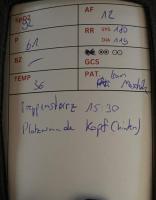 SpO2 92
AF 12
P 61
RR SYS 180
DIA 119
BZ –
GCS
TEMP 36
PAT.
Treppensturz 15:30
Platzwunde Kopf (hinten)